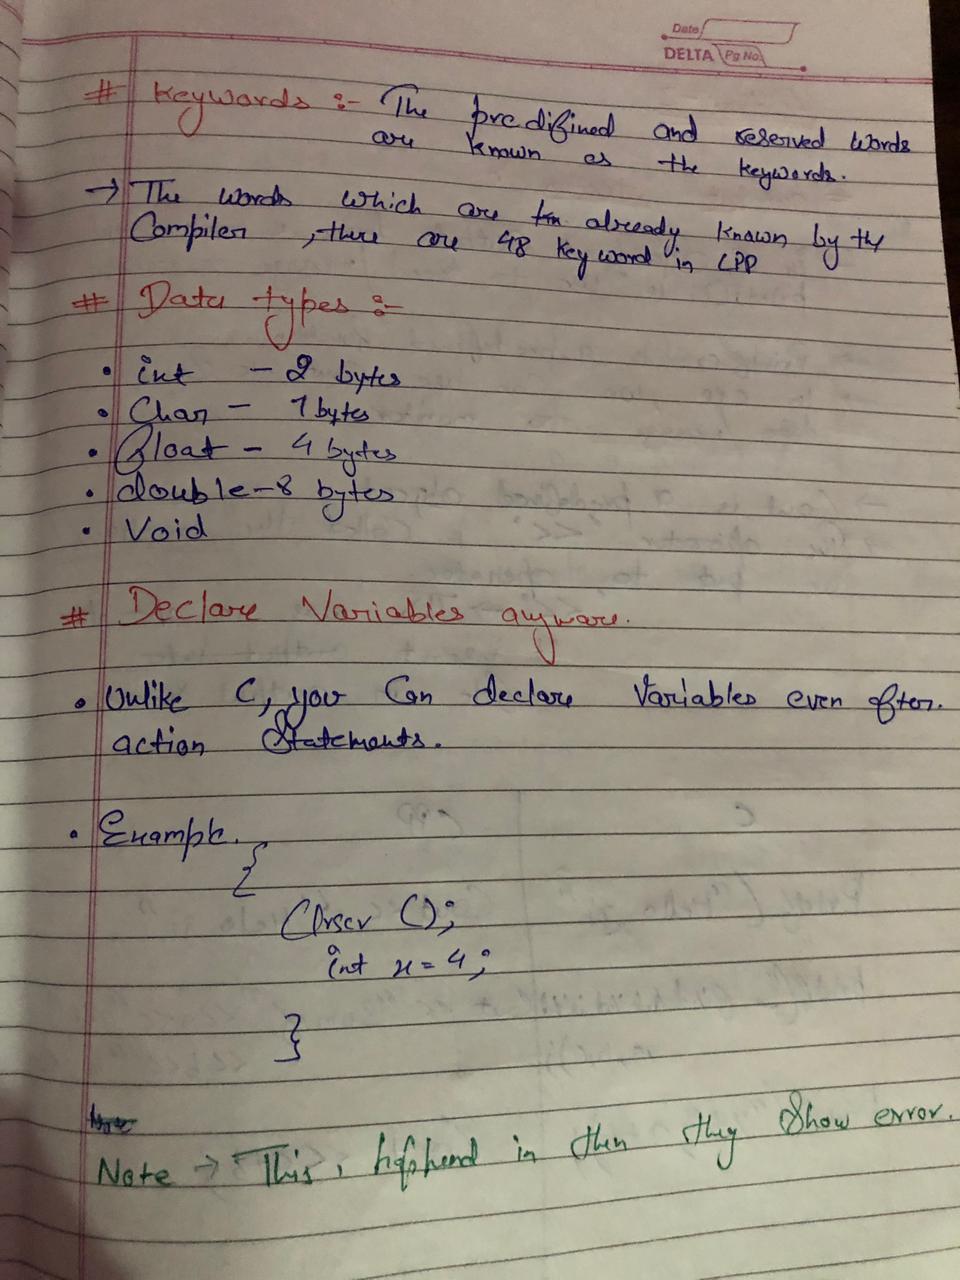 Date
DELTA Pg No.
# Keywords :- The predifined and reserved words
are known as the keywords.
→ The words which are already known by the
Compiler, there are 48 keyword in CPP
# Data types :-
• int - 2 bytes
• Char - 1 bytes
• float - 4 bytes
• double - 8 bytes
• Void
# Declare Variables anyware.
• Unlike C, you Can declare Variables even after.
action Statements.
• Example.
{
Clrscr ();
int x = 4;
}
Note → This, in then they Show error.